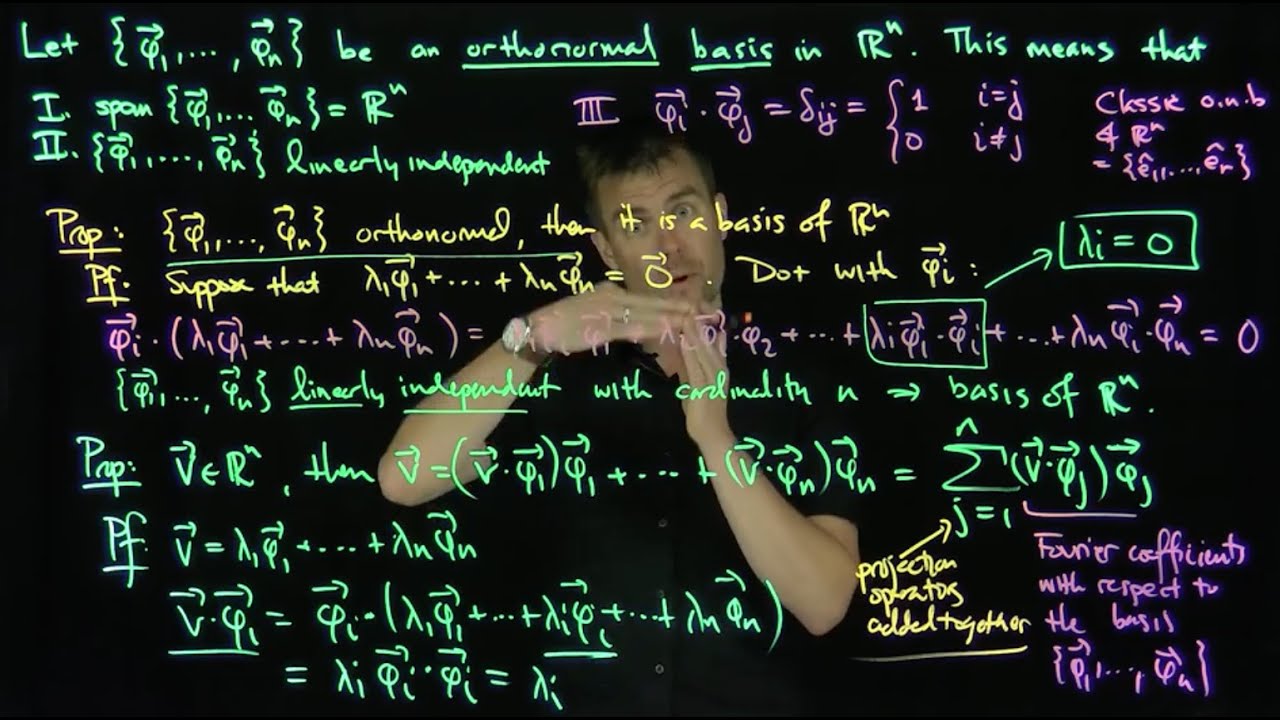 Let {φ⃗₁,...,φ⃗ₙ} be an orthonormal basis in ℝⁿ. This means that
I. span {φ⃗₁,...φ⃗ₙ} = ℝⁿ
II. {φ⃗₁,...,φ⃗ₙ} linearly independent
III φ⃗ᵢ·φ⃗ⱼ = δᵢⱼ = { 1 i=j
0 i≠j
Classic o.n.b
of ℝⁿ
= {ê₁,...,êₙ}
Prop: {φ⃗₁,...,φ⃗ₙ} orthonormal, then it is a basis of ℝⁿ
Pf: Suppose that λ₁φ⃗₁+...+λₙφ⃗ₙ = 0⃗. Dot with φ⃗ᵢ:
λᵢ = 0
φ⃗ᵢ·(λ₁φ⃗₁+...+λₙφ⃗ₙ) = φ⃗₁ + λ₂φ⃗ᵢ·φ₂+...+λᵢφ⃗ᵢ·φ⃗ᵢ+...+λₙφ⃗ᵢ·φ⃗ₙ = 0
{φ⃗₁,...,φ⃗ₙ} linearly independent with cardinality n → basis of ℝⁿ.
Prop: v⃗∈ℝⁿ, then v⃗=(v⃗·φ⃗₁)φ⃗₁+...+(v⃗·φ⃗ₙ)φ⃗ₙ = ∑ⁿⱼ₌₁(v⃗·φ⃗ⱼ)φ⃗ⱼ
Pf: v⃗=λ₁φ⃗₁+...+λₙφ⃗ₙ
v⃗·φ⃗ᵢ = φ⃗ᵢ·(λ₁φ⃗₁+...+λᵢφ⃗ᵢ+...+λₙφ⃗ₙ)
= λᵢφ⃗ᵢ·φ⃗ᵢ = λᵢ
projection
operators
added together
Fourier coefficients
with respect to
the basis
{φ⃗₁,...,φ⃗ₙ}